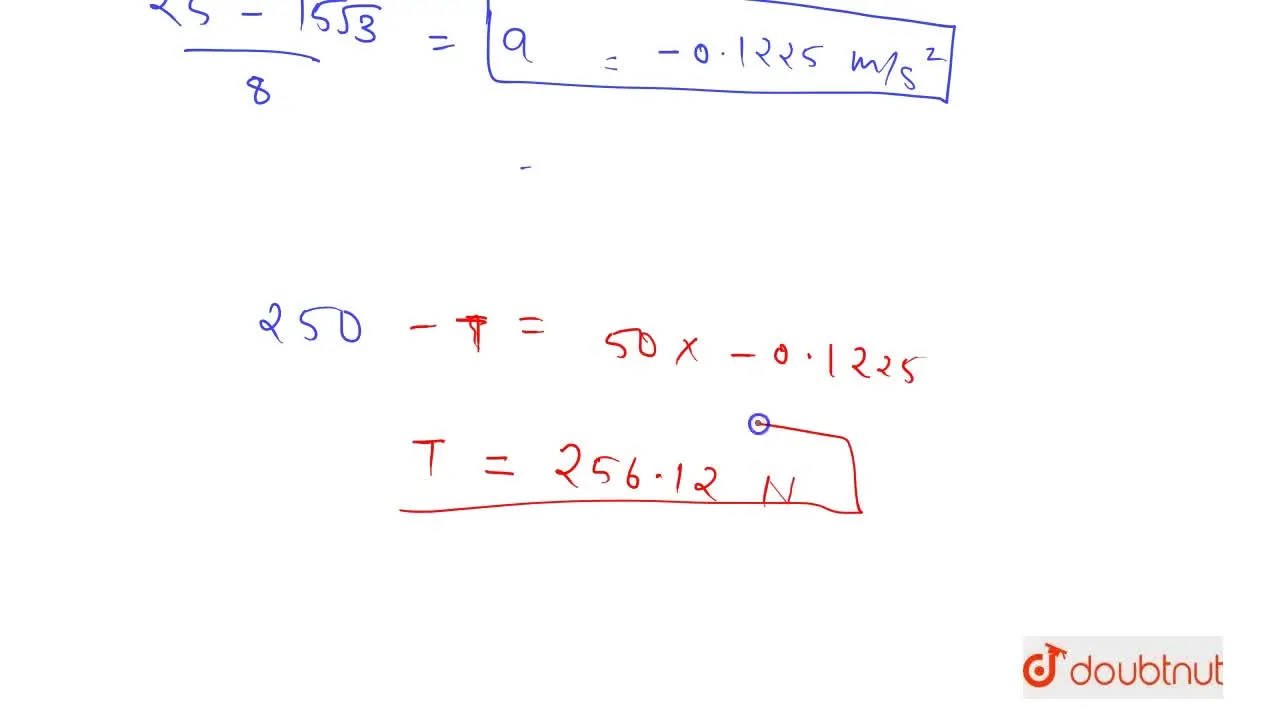 25 - 15√3
8
= a = -0.1225 m/s²
-
250 - T = 50 x - 0.1225
T = 256.12 N
doubtnut